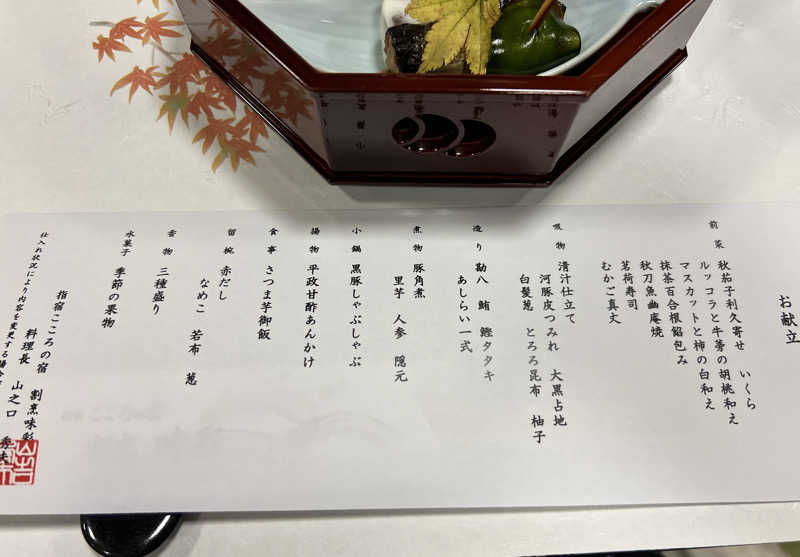 お献立
前菜 秋茄子利久寄せ いくら
ルッコラと牛蒡の胡桃和え
マスカットと柿の白和え
抹茶百合根餡包み
秋刀魚幽庵焼
茗荷寿司
むかご真丈
吸物 清汁仕立て
河豚皮つみれ 大黒占地
白髪葱 とろろ昆布 柚子
造り 勘八 鮪 鰹タタキ
あしらい一式
煮物 豚角煮
里芋 人参 隠元
小鍋 黒豚しゃぶしゃぶ
揚物 平政甘酢あんかけ
食事 さつま芋御飯
留椀 赤だし
なめこ 若布 葱
香物 三種盛り
水菓子 季節の果物
指宿こころの宿 割烹味彩
料理長 山之口
仕入れ状況により内容を変更する場合